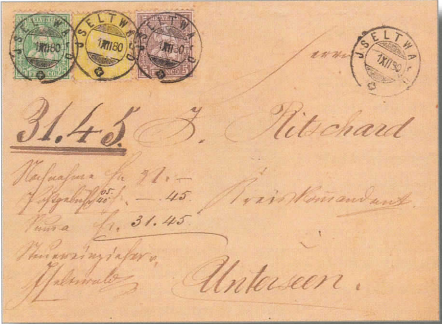 JSELTWALD
1.XII.80
JSELTWALD
1.XII.80
JSELTWALD
1.XII.80
JSELTWALD
1.XII.80
Herrn
31.45. J. Ritschard
Nachnahme Fr. 31.—
45
Kreiskommandant.
Summa Fr. 31.45
Steuereinzieher
Iseltwald
Unterseen.